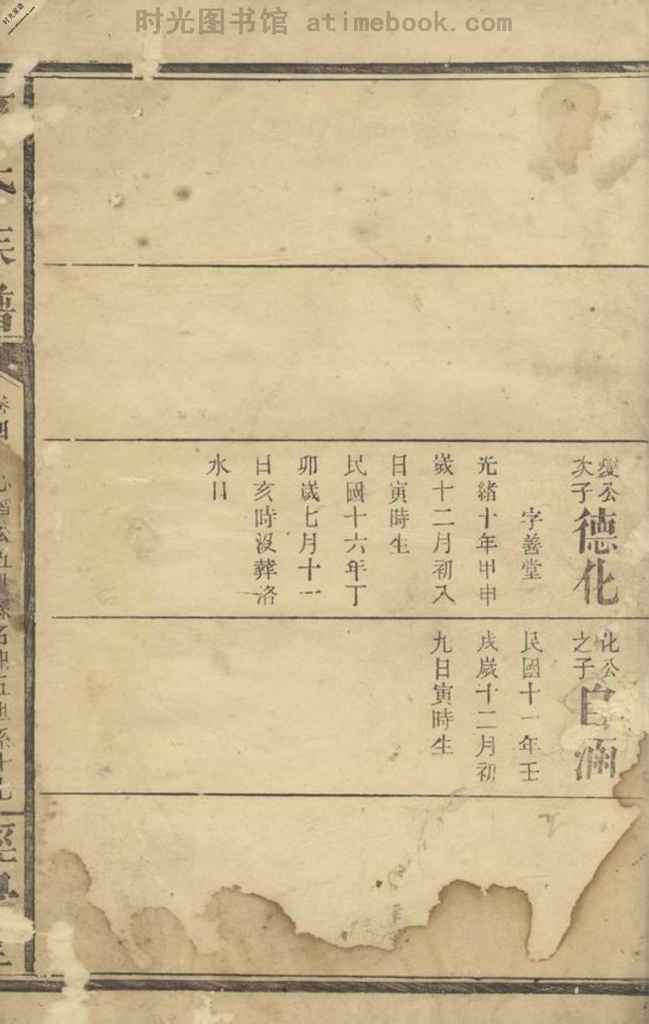 时光图书馆 atimebook.com
變公
次子
德化
字善堂
光緒十年甲申
歲十二月初八
日寅時生
民國十六年丁
卯歲七月十一
日亥時沒葬洛
水日
化公
之子
自涵
民國十一年壬
戌歲十二月初
九日寅時生
氏族譜
卷四